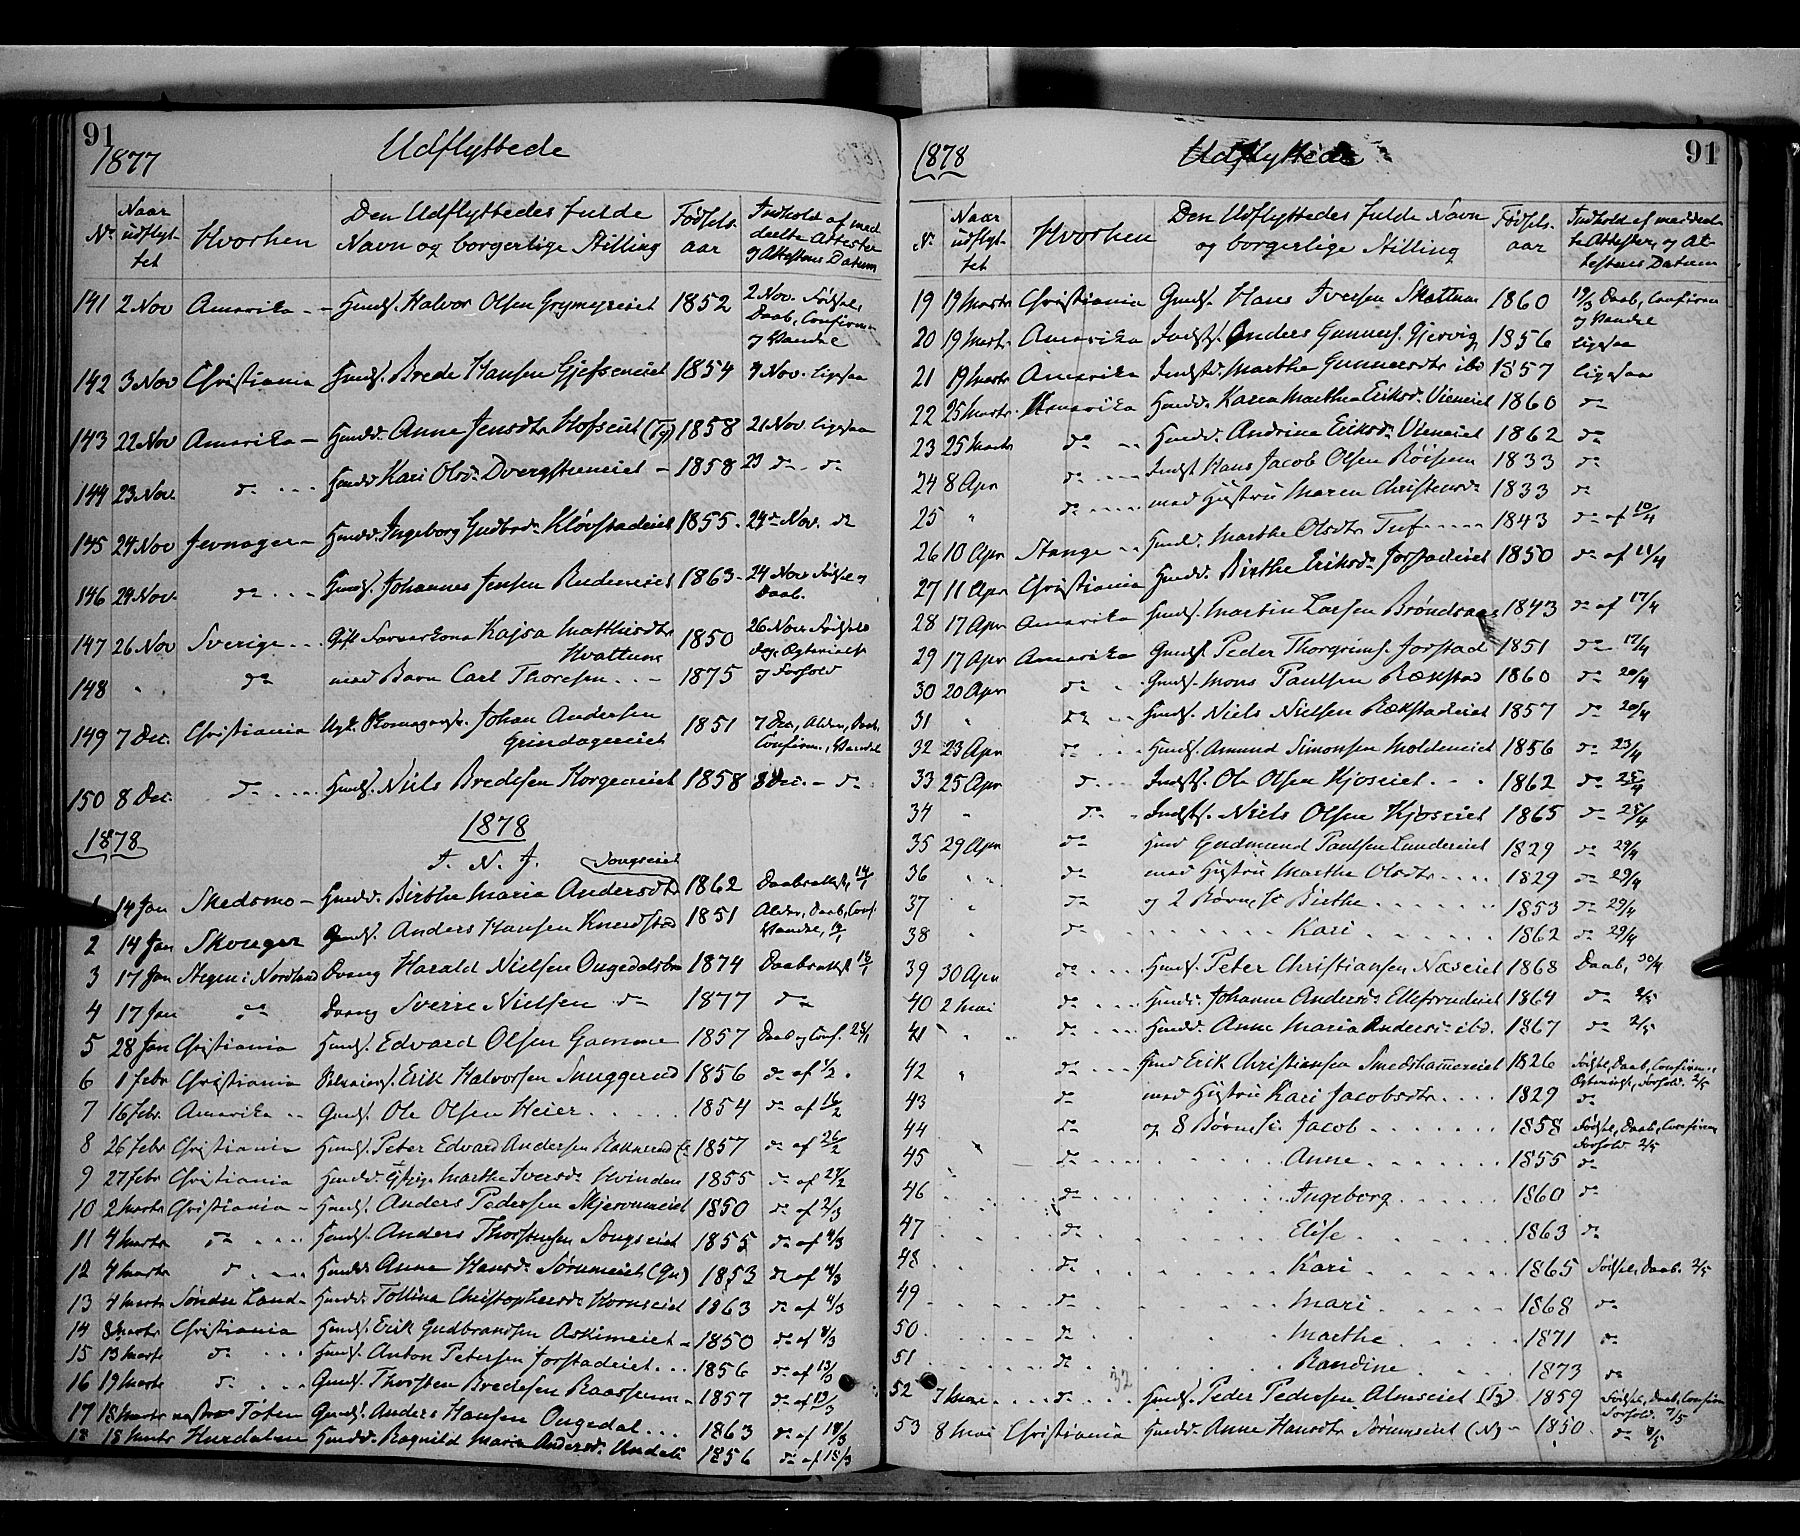 91
1877
Udflyttede
No
Naar udflyttet
Hvorhen
Den Udflyttedes fulde Navn og borgerlige Stilling
Fødselsaar
Indhold af meddeelte Attester og Attestens Datum
141 2 Nov Amerika - Huusm.s. Halvor Olsen Grymyreiet 1852 2 Nov. Fødsel, Daab, Confirm. og Vandel
142 3 Nov Christiania Huusm.s. Brede Hansen Gjefseneiet 1854 3 Nov. ligesaa
143 22 Nov Amerika - Anne Jensdtr Hofseiet (Tg) 1858 21 Nov ligesaa
144 23 Nov. do Kari Olsdr Dvergsteneiet - 1858 23 do do
145 24 Nov Jevnager - Ingeborg Gudbrdr Kløvstadeiet 1855 24de Nov. do
146 24 Nov. do Johannes Jensen Rudeneiet 1863 24 Nov Fødsel og Daab.
147 26 Nov Sverige Gift Kajsa Matthisdtr Hvattum 1850 26 Nov Fødsels og Forhold
148 " do med Barn Carl Thoresen 1875
149 7 Dec. Christiania Ugk. Johan Andersen Grindageneiet 1851 7 Dec., Alder, Daab, Confirm., Vandel
150 8 Dec. do Niels Bredesen Horgeneiet 1858 8 Dec. - do
1878
1878
I. N. J.
Songseiet
1 14 Jan Skedsmo - Birthe Maria Andersdtr 1862 Daabsattest, 14/1
2 14 Jan Skouger Anders Hansen Knerdstad 1851 Alder, Daab, Conf. Vandel, 14/1
3 17 Jan Stegen i Nordland Dreng Harald Nielsen Ougedalsbra 1874 Daabsattest 16/1
4 17 Jan do Dreng Sverre Nielsen do 1877 do
5 28 Jan Christiania Edvard Olsen Gamme 1857 Daab og Conf. 28/1
6 1 febr Christiania Erik Halvorsen Smuggerud 1856 do af 1/2
7 16 febr. Amerika Ole Olsen Heier 1854 do af 16/2
8 26 febr Christiania Peter Edvard Andersen Rakkerud 1857 do af 26/2
9 27 febr Christiania Marthe Iversdr Hvinden 1855 do af 27/2
10 2 Marts Christiania - Anders Pedersen Skjerumeiet 1850 do af 2/3
11 4 Marts do Anders Thorstensen Songseiet 1855 do af 4/3
12 4 Marts do Anne Hansdr Sørumeiet (Gn) 1853 do af 4/3
13 4 Marts Søndre Land - Tolline Christophersdr Hornseiet 1863 do af 4/3
14 8 Marts Christiania Erik Gudbrandsen Askimeiet - 1850 do af 8/3
15 13 Marts do Anton Petersen Jorstadeiet 1856 do af 13/3
16 19 Marts do Thorsten Bredesen Raassum - 1857 do af 19/3
17 18 Marts Toten Anders Hansen Ougedal 1863 do af 18/3
18 18 Marts Hurdalen Ragnild Marie Andersdr 1856 do af 18/3
1878
Udflyttede
91
No
Naar udflyttet
Hvorhen
Den Udflyttedes fulde Navn og borgerlige Stilling
Fødselsaar
Indhold af meddeelte Attester, og Attestens Datum
19 19 Marts Christiania Hans Iversen Skattum 1860 19/3 Daab, Confirm og Vandel
20 19 Marts Amerika Indst.s. Anders Gunners. Gjervig 1856 ligesaa
21 19 Marts Amerika Indstd. Marthe Gunnersdtr ibd 1857 ligesaa
22 25 Marts Amerika Karen Marthea Eriksdr Vieneiet 1860 do
23 25 Marts do Andrine Eriksdr Vieneiet 1862 do
24 8 Apr do Indst Hans Jacob Olsen Røisem 1833 do
25 " do med Hustru Maren Christensdr 1833 do
26 10 Apr Stange Marthe Olsdtr Tuf 1843 do af 10/4
27 11 Apr Christiania Birthe Eriksdr Jorstadeiet 1850 do af 11/4
28 17 Apr Amerika Martin Larsen Brøndsage 1843 do af 17/4
29 17 Apr Amerika Peder Thorgrims. Jorstad 1851 do 17/4
30 20 Apr do Mons Paulsen Rækstad 1860 do 20/4
31 " do Niels Nielsen Rækstadeiet 1857 do 20/4
32 23 Apr do Amund Simonsen Moldeneiet 1856 do 23/4
33 25 Apr do Ole Olsen Kjoseiet 1862 do 25/4
34 " do Niels Olsen Kjoseiet 1865 do 25/4
35 29 Apr do Gudmund Paulsen Lundereiet 1829 do 29/4
36 " do med Hustru Marthe Olsdtr 1829 do 29/4
37 " do og 2 Børn, s: Birthe 1853 do 29/4
38 " do Kari 1862 do 29/4
39 30 Apr do Peter Christiansen Næseiet 1868 Daab, 30/4
40 2 Mai do Johanne Andersdr Ellefsrudeiet 1864 do 2/5
41 " do Anne Maria Andersdr ibd. 1867 do 2/5
42 " do Erik Christiansen Smedshammereiet 1826 Fødsel, Daab, Confirm., Forhold. 2/5
43 do med Hustru Kari Jacobsdtr 1829 do
44 do og 8 Børn s: Jacob 1858 Fødsel, Daab, Confirm, Forhold 2/5
45 do Anne 1855 do
46 do Ingeborg 1860 do
47 do Elise 1863 do
48 do Kari 1865 Fødsel, Daab. 2/5
49 do Mari 1868 do
50 do Marthe 1871 do
51 do Randine 1873 do
32
52 7 Mai do Peder Pedersen Almseiet (Tg) 1859 Fødsel, Daab, Confirm, Forhold. 7/5
53 8 Mai Christiania Anne Hansdtr Sørumseiet (N) - 1850 do 8/5